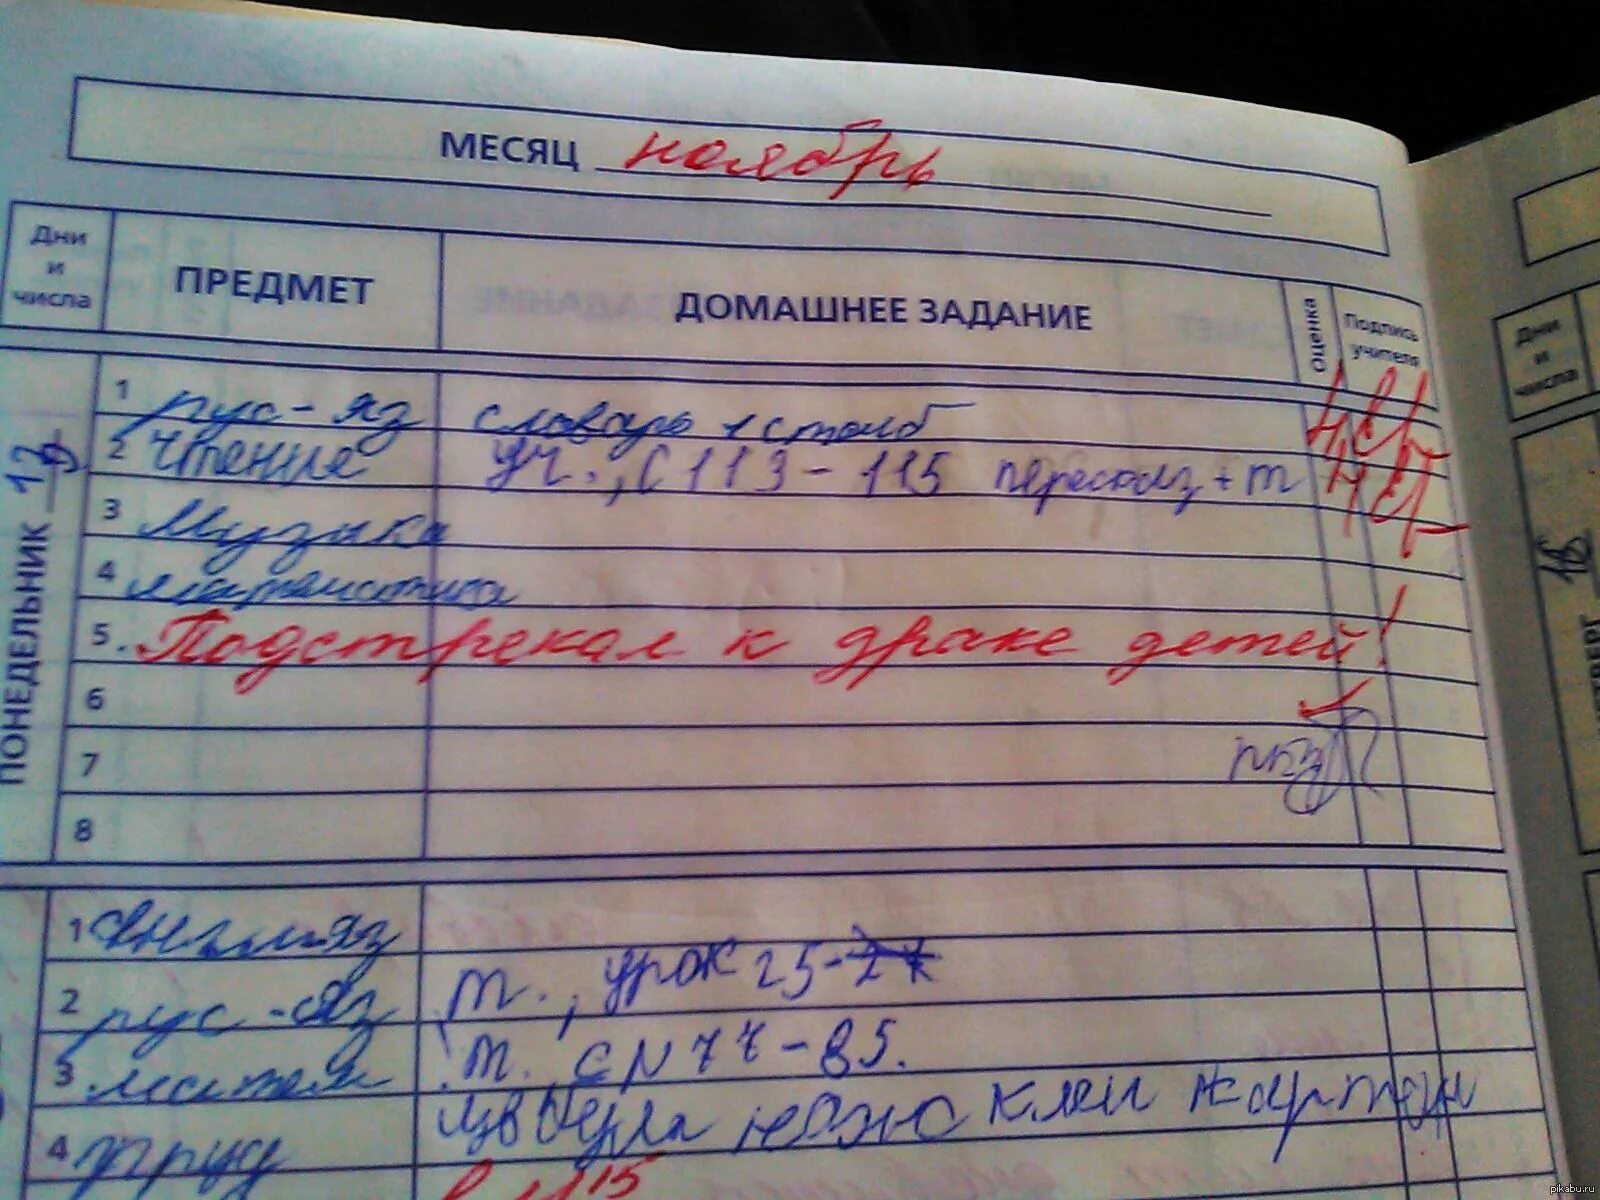 МЕСЯЦ ноябрь
Дни и числа
ПРЕДМЕТ
ДОМАШНЕЕ ЗАДАНИЕ
Оценка
Подпись учителя
ПОНЕДЕЛЬНИК
1 рус-яз словарь 1 столб
2 чтение уч., С 113-115 пересказ + т
3 Музыка
4 математика
5. Подстрекал к драке детей!
6
7
8
1
2 рус-яз т., урок 25-
3 матем т. с N 77-85.
4 труд клеи картон
Дни и числа
18
pikabu.ru